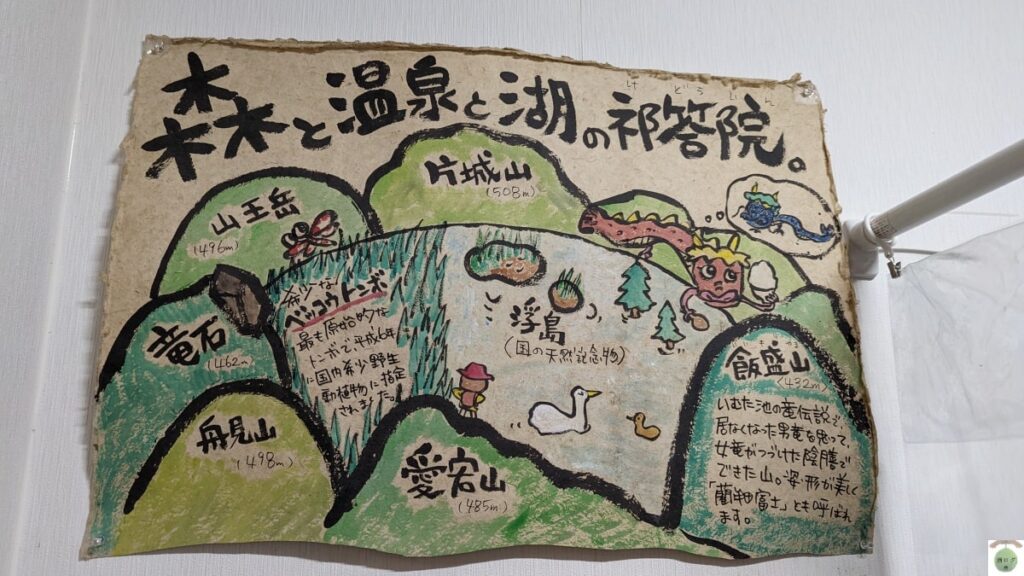 けどういん
森と温泉と湖の祁答院。
片城山
(508m)
山王岳
(496m)
竜石
(462m)
舟見山
(498m)
愛宕山
(485m)
希少な
ベッコウトンボ
最も原始的な
トンボで、平成6年
に国内希少野生
動植物に指定
されました。
浮島
(国の天然記念物)
飯盛山
(432m)
いむた池の竜伝説で、
居なくなった男竜を思って、
女竜がつづけた陰膳で
できた山。姿・形が美しく
「藺牟田富士」とも呼ばれ
ます。